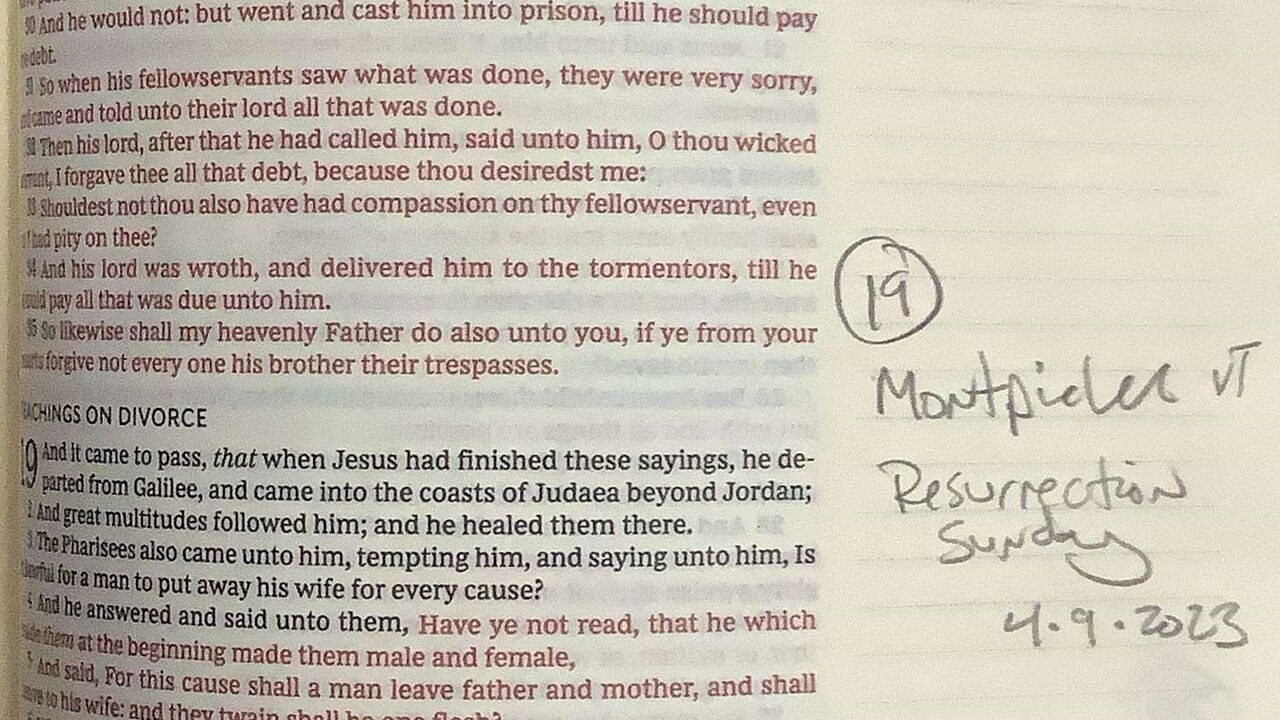 30 And he would not: but went and cast him into prison, till he should pay
debt.
31 So when his fellowservants saw what was done, they were very sorry,
came and told unto their lord all that was done.
32 Then his lord, after that he had called him, said unto him, O thou wicked
I forgave thee all that debt, because thou desiredst me:
33 Shouldest not thou also have had compassion on thy fellowservant, even
I had pity on thee?
34 And his lord was wroth, and delivered him to the tormentors, till he
pay all that was due unto him.
35 So likewise shall my heavenly Father do also unto you, if ye from your
forgive not every one his brother their trespasses.
TEACHINGS ON DIVORCE
19 And it came to pass, that when Jesus had finished these sayings, he de-
parted from Galilee, and came into the coasts of Judaea beyond Jordan;
2 And great multitudes followed him; and he healed them there.
3 The Pharisees also came unto him, tempting him, and saying unto him, Is
lawful for a man to put away his wife for every cause?
4 And he answered and said unto them, Have ye not read, that he which
them at the beginning made them male and female,
5 And said, For this cause shall a man leave father and mother, and shall
to his wife: and they twain shall be one flesh?
19
Montpielier VT
Resurrection
Sunday
4.9.2023